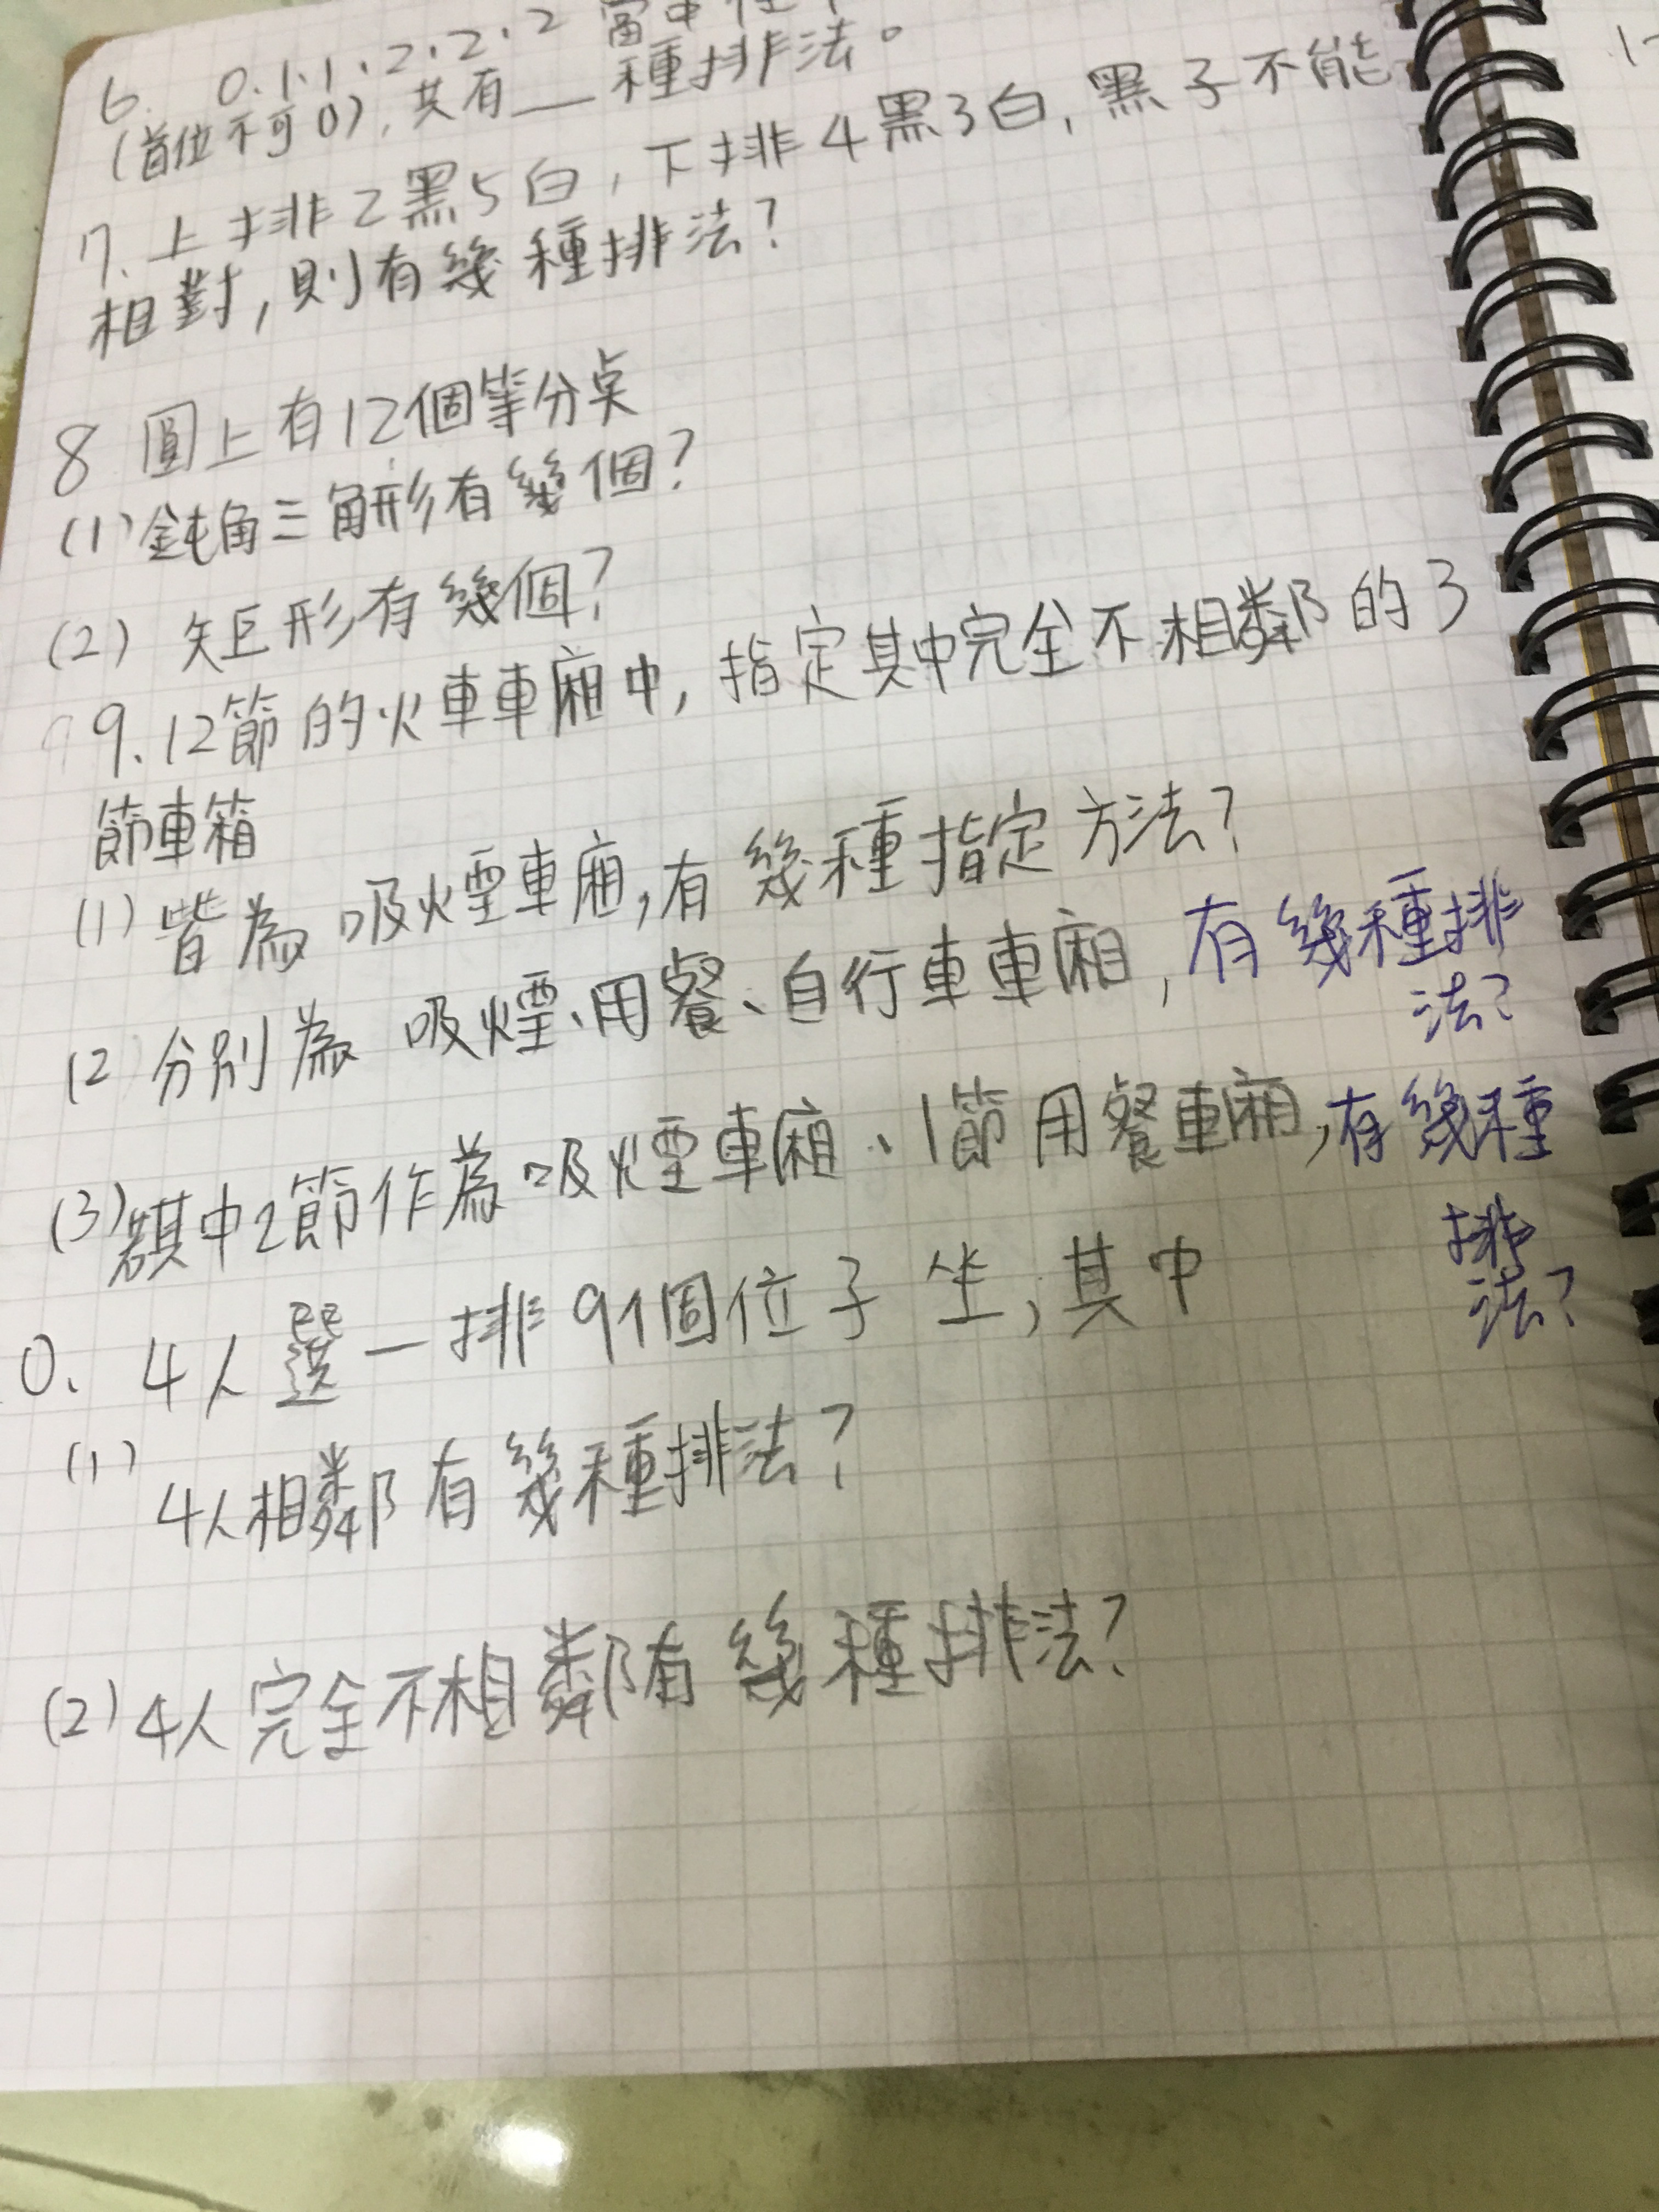 6. 0.1.1.2.2.2
(首位不可0), 共有__種排法。
7. 上排2黑5白, 下排4黑3白, 黑子不能
相對, 則有幾種排法?
8 圓上有12個等分點
(1) 鈍角三角形有幾個?
(2) 矩形有幾個?
9. 12節的火車車廂中, 指定其中完全不相鄰的3
節車箱
(1) 皆為吸煙車廂, 有幾種指定方法?
(2) 分別為 吸煙、用餐、自行車車廂, 有幾種排
法?
(3) 其中2節作為吸煙車廂、1節用餐車廂, 有幾種
排
法?
0. 4人選一排9個位子坐, 其中
(1)
4人相鄰有幾種排法?
(2) 4人完全不相鄰有幾種排法?